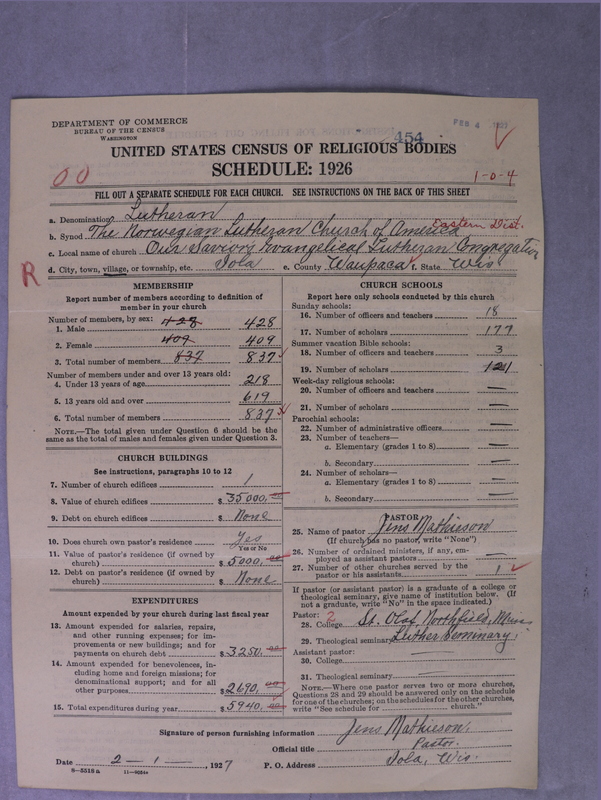 DEPARTMENT OF COMMERCE
BUREAU OF THE CENSUS
WASHINGTON
FEB 4 1927
454
UNITED STATES CENSUS OF RELIGIOUS BODIES
SCHEDULE: 1926
00
1-0-4
FILL OUT A SEPARATE SCHEDULE FOR EACH CHURCH. SEE INSTRUCTIONS ON THE BACK OF THIS SHEET
a. Denomination Lutheran
b. Synod The Norwegian Lutheran Church of America Eastern Dist.
c. Local name of church Our Saviors Evangelical Lutheran Congregation
R
d. City, town, village, or township, etc. Iola e. County Waupaca f. State Wis
MEMBERSHIP
Report number of members according to definition of
member in your church
Number of members, by sex:
1. Male 428 428
2. Female 409 409
3. Total number of members 837 837
Number of members under and over 13 years old:
4. Under 13 years of age 218
5. 13 years old and over 619
6. Total number of members 837
NOTE.—The total given under Question 6 should be
same as the total of males and females given under Question 3.
CHURCH BUILDINGS
See instructions, paragraphs 10 to 12
7. Number of church edifices 1
8. Value of church edifices $ 35000.00
9. Debt on church edifices $ None
10. Does church own pastor's residence? Yes
Yes or No
11. Value of pastor's residence (if owned by
church) $ 5000.00
12. Debt on pastor's residence (if owned by
church) $ None
EXPENDITURES
Amount expended by your church during last fiscal year
13. Amount expended for salaries, repairs,
and other running expenses; for im-
provements or new buildings; and for
payments on church debt $ 3250.00
14. Amount expended for benevolences, in-
cluding home and foreign missions; for
denominational support; and for all
other purposes $ 2690.00
15. Total expenditures during year $ 5940.00
CHURCH SCHOOLS
Report here only schools conducted by this church
Sunday schools:
16. Number of officers and teachers 18
17. Number of scholars 177
Summer vacation Bible schools:
18. Number of officers and teachers 3
19. Number of scholars 121
Week-day religious schools:
20. Number of officers and teachers —
21. Number of scholars —
Parochial schools:
22. Number of administrative officers —
23. Number of teachers—
a. Elementary (grades 1 to 8) —
b. Secondary —
24. Number of scholars—
a. Elementary (grades 1 to 8) —
b. Secondary —
PASTOR
25. Name of pastor Jens Mathieson
(If church has no pastor, write "None")
26. Number of ordained ministers, if any, em-
ployed as assistant pastors —
27. Number of other churches served by the
pastor or his assistants 1
If pastor (or assistant pastor) is a graduate of a college or
theological seminary, give name of institution below. (If
not a graduate, write "No" in the space indicated.)
Pastor: 2
28. College St. Olaf, Northfield, Minn.
29. Theological seminary Luther Seminary
Assistant pastor:
30. College
31. Theological seminary
NOTE.—Where one pastor serves two or more churches,
Questions 28 and 29 should be answered only on the schedule
for one of the churches; on the schedules for the other churches,
write "See schedule for church."
Signature of person furnishing information Jens Mathieson.
Official title Pastor.
Date 2-1-, 1927 P. O. Address Iola, Wis.
8-5518 a 11-8654